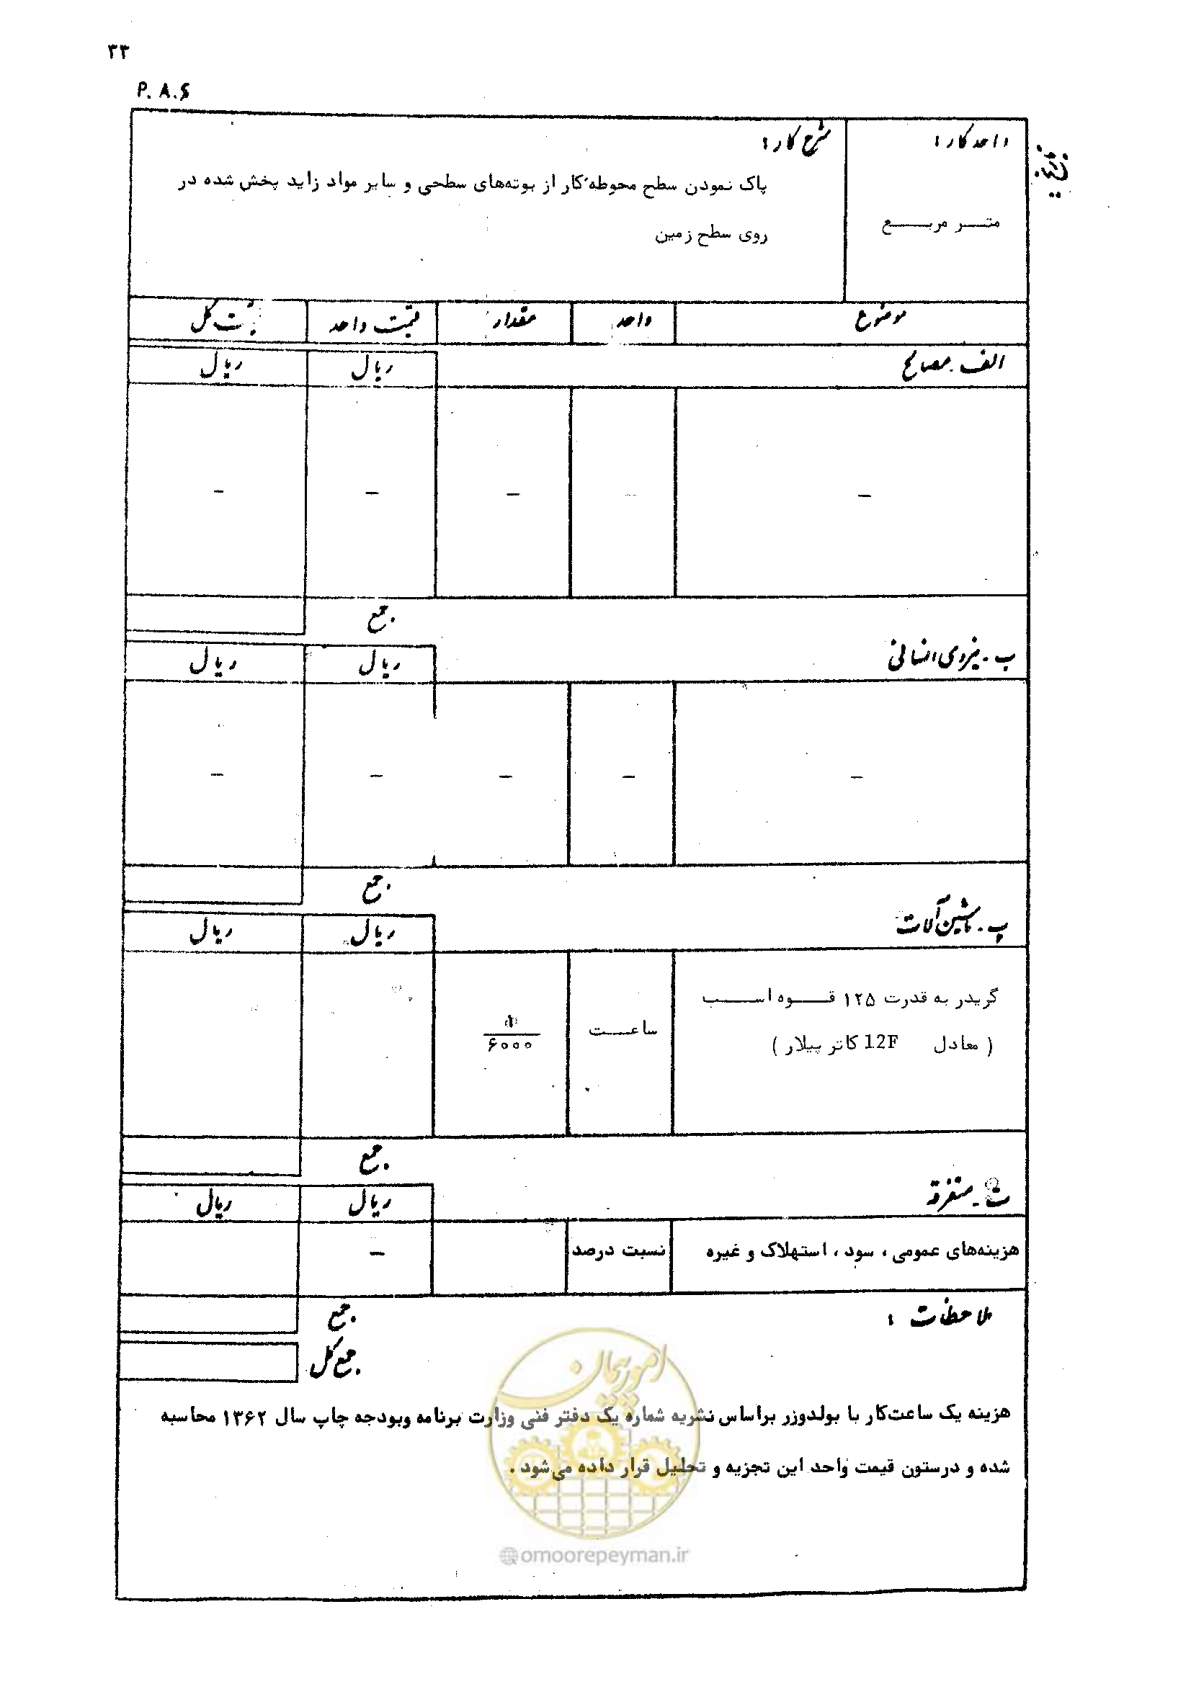 ۳۳
P. A. S
واحد کار :
شرح کار :
متر مربع
پاک نمودن سطح محوطه کار از بوته‌های سطحی و سایر مواد زاید پخش شده در
روی سطح زمین
موضوع واحد مقدار قیمت واحد کل
الف ـ مصالح ریال ریال
– – – – –
جمع
ب ـ نیروی انسانی ریال ریال
– – – – –
جمع
پ ـ ماشین آلات ریال ریال
گریدر به قدرت ۱۲۵ قوه اسب
( معادل 12F کاتر پیلار )
ساعت
۱
۶۰۰۰
جمع
ت ـ متفرقه ریال ریال
هزینه‌های عمومی ، سود ، استهلاک و غیره نسبت درصد –
ملاحظات :
جمع
جمع کل
هزینه یک ساعت‌کار با بولدوزر براساس نشریه شماره یک دفتر فنی وزارت برنامه وبودجه چاپ سال ۱۳۶۲ محاسبه
شده و درستون قیمت واحد این تجزیه و تحلیل قرار داده می‌شود .
امور پیمان
@omoorepeyman.ir